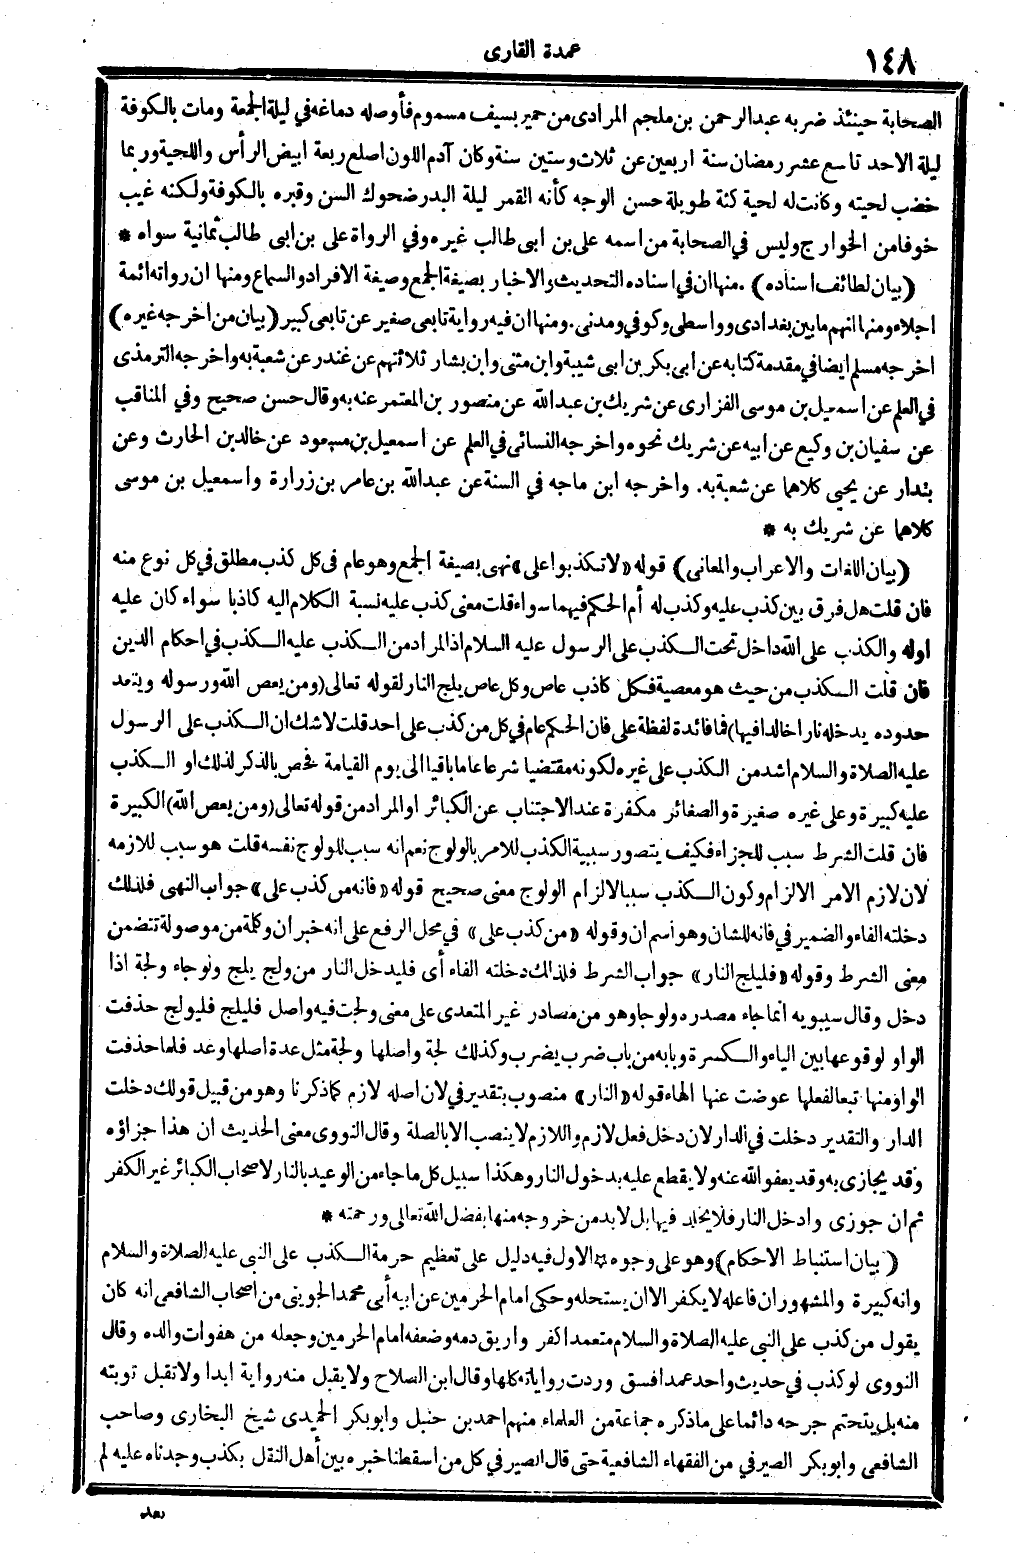 ١٤٨
عمدة القارى
الصحابة حينئذ ضربه عبدالرحمن بن ملجم المرادى من حمير بسيف مسموم فأوصله دماغه في ليلة الجمعة ومات بالكوفة
ليلة الاحد تاسع عشر رمضان سنة اربعين عن ثلاث وستين سنة وكان آدم اللون اصلع ربعة ابيض الرأس واللحية وربما
خضب لحيته وكانت له لحية كثة طويلة حسن الوجه كأنه القمر ليلة البدر ضحوك السن وقبره بالكوفة ولكنه غيب
خوفا من الخوارج وليس في الصحابة من اسمه على بن ابى طالب غيره وفي الرواة على بن ابى طالب ثمانية سواه *
(بيان لطائف اسناده) . منها ان في اسناده التحديث والاخبار بصيغة الجمع وصيغة الافراد والسماع ومنها ان رواته ائمة
اجلاء ومنها انهم ما بين بغدادى وواسطى وكوفي ومدنى . ومنها ان فيه رواية تابعى صغير عن تابعى كبير (بيان من اخرجه غيره)
اخرجه مسلم ايضا في مقدمة كتابه عن ابى بكر بن ابى شيبة وابن مثنى وابن بشار ثلاثتهم عن غندر عن شعبة به واخرجه الترمذى
في العلم عن اسمعيل بن موسى الفزارى عن شريك بن عبد الله عن منصور بن المعتمر عنه به وقال حسن صحيح وفي المناقب
عن سفيان بن وكيع عن ابيه عن شريك نحوه واخرجه النسائى في العلم عن اسمعيل بن مسعود عن خالد بن الحارث وعن
بندار عن يحيى كلاهما عن شعبة به . واخرجه ابن ماجه في السنة عن عبدالله بن عامر بن زرارة واسمعيل بن موسى
كلاهما عن شريك به *
(بيان اللغات والاعراب والمعانى) قوله «لا تكذبوا على» نهى بصيغة الجمع وهو عام فى كل كذب مطلق في كل نوع منه
فان قلت هل فرق بين كذب عليه وكذب له أم الحكم فيهما سواء قلت معنى كذب عليه نسبة الكلام اليه كاذبا سواء كان عليه
اوله والكذب على الله داخل تحت الكذب على الرسول عليه السلام اذ المراد من الكذب عليه الكذب في احكام الدين
فان قلت الكذب من حيث هو معصية فكل كاذب عاص وكل عاص يلج النار لقوله تعالى (ومن يعص الله ورسوله ويتعد
حدوده يدخله نارا خالدا فيها) فما فائدة لفظة على فان الحكم عام في كل من كذب على احد قلت لا شك ان الكذب على الرسول
عليه الصلاة والسلام اشد من الكذب على غيره لكونه مقتضيا شرعا عاما باقيا الى يوم القيامة فخص بالذكر لذلك او الكذب
عليه كبيرة وعلى غيره صغيرة والصغائر مكفرة عند الاجتناب عن الكبائر او المراد من قوله تعالى (ومن يعص الله) الكبيرة
فان قلت الشرط سبب للجزاء فكيف يتصور سببية الكذب للامر بالولوج نعم انه سبب للولوج نفسه قلت هو سبب للازمه
لان لازم الامر الالزام وكون الكذب سببا لالزام الولوج معنى صحيح قوله «فانه من كذب على» جواب النهى فلذلك
دخلته الفاء والضمير في فانه للشان وهو اسم ان وقوله «من كذب على» في محل الرفع على انه خبر ان وكلمة من موصولة تتضمن
معنى الشرط وقوله «فليلج النار» جواب الشرط فلذلك دخلته الفاء أى فليدخل النار من ولج يلج ولوجا ولجة اذا
دخل وقال سيبويه انما جاء مصدره ولوجا وهو من مصادر غير المتعدى على معنى ولجت فيه واصل فليلج فليولج حذفت
الواو لوقوعها بين الياء والكسرة وبابه من باب ضرب يضرب وكذلك لجة واصلها ولجة مثل عدة اصلها وعد فلما حذفت
الواو منها تبعا لفعلها عوضت عنها الهاء قوله «النار» منصوب بتقدير في لان اصله لازم كما ذكرنا وهو من قبيل قولك دخلت
الدار والتقدير دخلت في الدار لان دخل فعل لازم واللازم لا ينصب الا بالصلة وقال النووى معنى الحديث ان هذا جزاؤه
وقد يجازى به وقد يعفو الله عنه ولا يقطع عليه بدخول النار وهكذا سبيل كل ما جاء من الوعيد بالنار لاصحاب الكبائر غير الكفر
ثم ان جوزى وادخل النار فلا يخلد فيها بل لا بد من خروجه منها بفضل الله تعالى ورحمته *
(بيان استنباط الاحكام) وهو على وجوه * الاول فيه دليل على تعظيم حرمة الكذب على النبى عليه الصلاة والسلام
وانه كبيرة والمشهور ان فاعله لا يكفر الا ان يستحله وحكى امام الحرمين عن ابيه أبى محمد الجوينى من اصحاب الشافعى انه كان
يقول من كذب على النبى عليه الصلاة والسلام متعمدا كفر واريق دمه وضعفه امام الحرمين وجعله من هفوات والده وقال
النووى لو كذب في حديث واحد عمدا فسق وردت رواياته كلها وقال ابن الصلاح ولا يقبل منه رواية ابدا ولا تقبل توبته
منه بل يتحتم جرحه دائما على ما ذكره جماعة من العلماء منهم احمد بن حنبل وابو بكر الحميدى شيخ البخارى وصاحب
الشافعى وابو بكر الصيرفي من الفقهاء الشافعية حتى قال الصيرفي كل من اسقطنا خبره بين أهل النقل بكذب وجدناه عليه لم
نعد